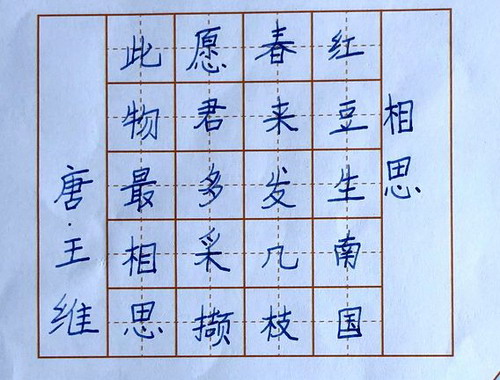 相思
红豆生南国
春来发几枝
愿君多采撷
此物最相思
唐·王维